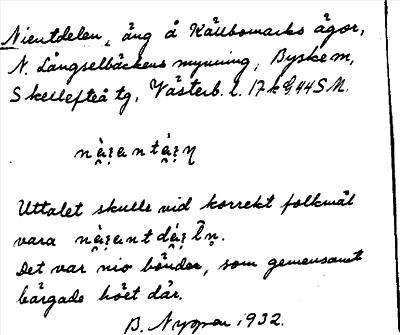 Nientdelen, äng å Källbomarks ägor,
N. Långselbäckens mynning, Byske m,
Skellefteå tg, Västerb. l. 17 k 44 SM.
Uttalet skulle vid korrekt folkmål
vara
Det var nio bönder, som gemensamt
bärgade höet där.
B. Nyman 1932.